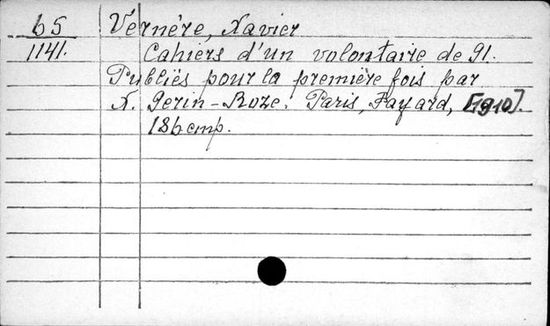 65 Vernére, Xavier
1141. Cahiers d'un volontaire de 91.
Publiés pour la première fois par
X. Gerin-Roze. Paris, Fayard, [1910].
186 стр.